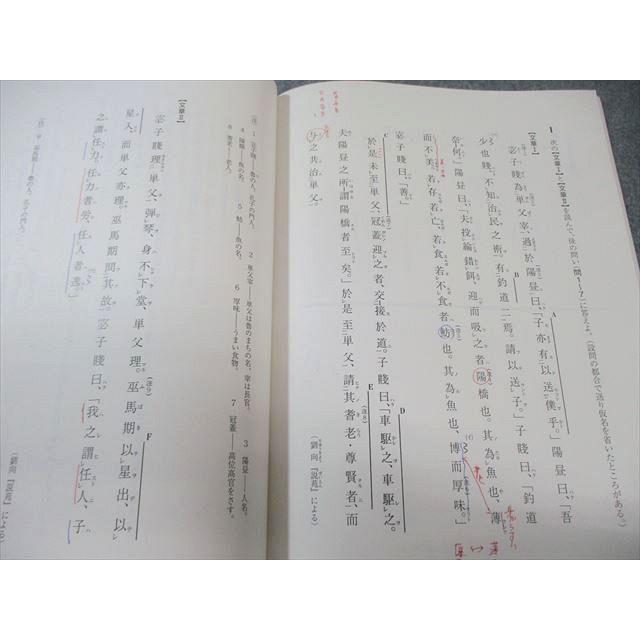 1 次の【文章Ⅰ】と【文章Ⅱ】を読んで、後の問い(問1〜7)に答えよ。(設問の都合で送り仮名を省いたところがある。)
【文章Ⅰ】
宓子賤為単父宰、過於陽昼曰、「子亦有以送僕乎。」陽昼曰、「吾
少也賤、不知治民之術。有釣道二焉、請以送子。」子賤曰、「釣道
奈何。」陽昼曰、「夫投綸錯餌、迎而吸之者陽橋也。其為魚也、薄
而不美。若存若亡、若食若不食者魴也。其為魚也、博而厚味。」
宓子賤曰、「善。」
於是未至単父、冠蓋迎之者、交接於道。子賤曰、「車駆之、車駆之。
夫陽昼之所謂陽橋者至矣。」於是至単父、請其耆老・尊賢者、而
与之共治単父。
(劉向『説苑』による)
A
B
C
D
E
(注) 1 宓子賤——魯の人。孔子の門人。
2 単父宰——単父は魯のまちの名。宰は長官。
3 陽昼——人名。
4 陽橋——魚の名。
5 魴——魚の名。
6 厚味——うまい食物。
7 冠蓋——高位高官をさす。
8 耆老——老人。
【文章Ⅱ】
宓子賤理単父、弾琴、身不下堂、単父理。巫馬期以星出、以
星入、而単父亦理。巫馬期問其故。宓子賤曰、「我之謂任人、子
之謂任力。任力者労、任人者逸。」
F
(劉向『説苑』による)